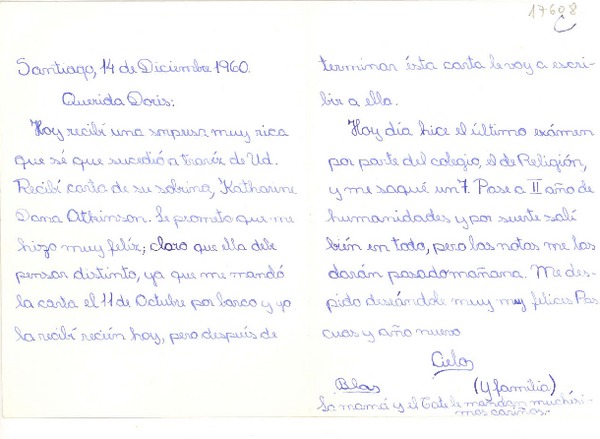 17608
Santiago, 14 de Diciembre 1960.
Querida Doris:
Hoy recibí una sorpresa muy rica
que sé que sucedió a travéz de Ud.
Recibí carta de su sobrina, Katharine
Dana Atkinson. Le prometo que me
hizo muy feliz; claro que ella debe
pensar distinto, ya que me mandó
la carta el 11 de Octubre por barco y yo
la recibí recién hoy, pero después de
terminar ésta carta le voy a escri-
bir a ella.
Hoy día hice el último exámen
por parte del colegio, el de Religión,
y me saqué un 7. Pase a II año de
humanidades y por suerte salí
bién en todo, pero las notas me las
darán pasadomañana. Me des-
pido deseándole muy muy felices Pas
cuas y año nuevo
Cielos
Blas (y familia)
La mamá y el Tate le mandan muchísi-
mos cariños.